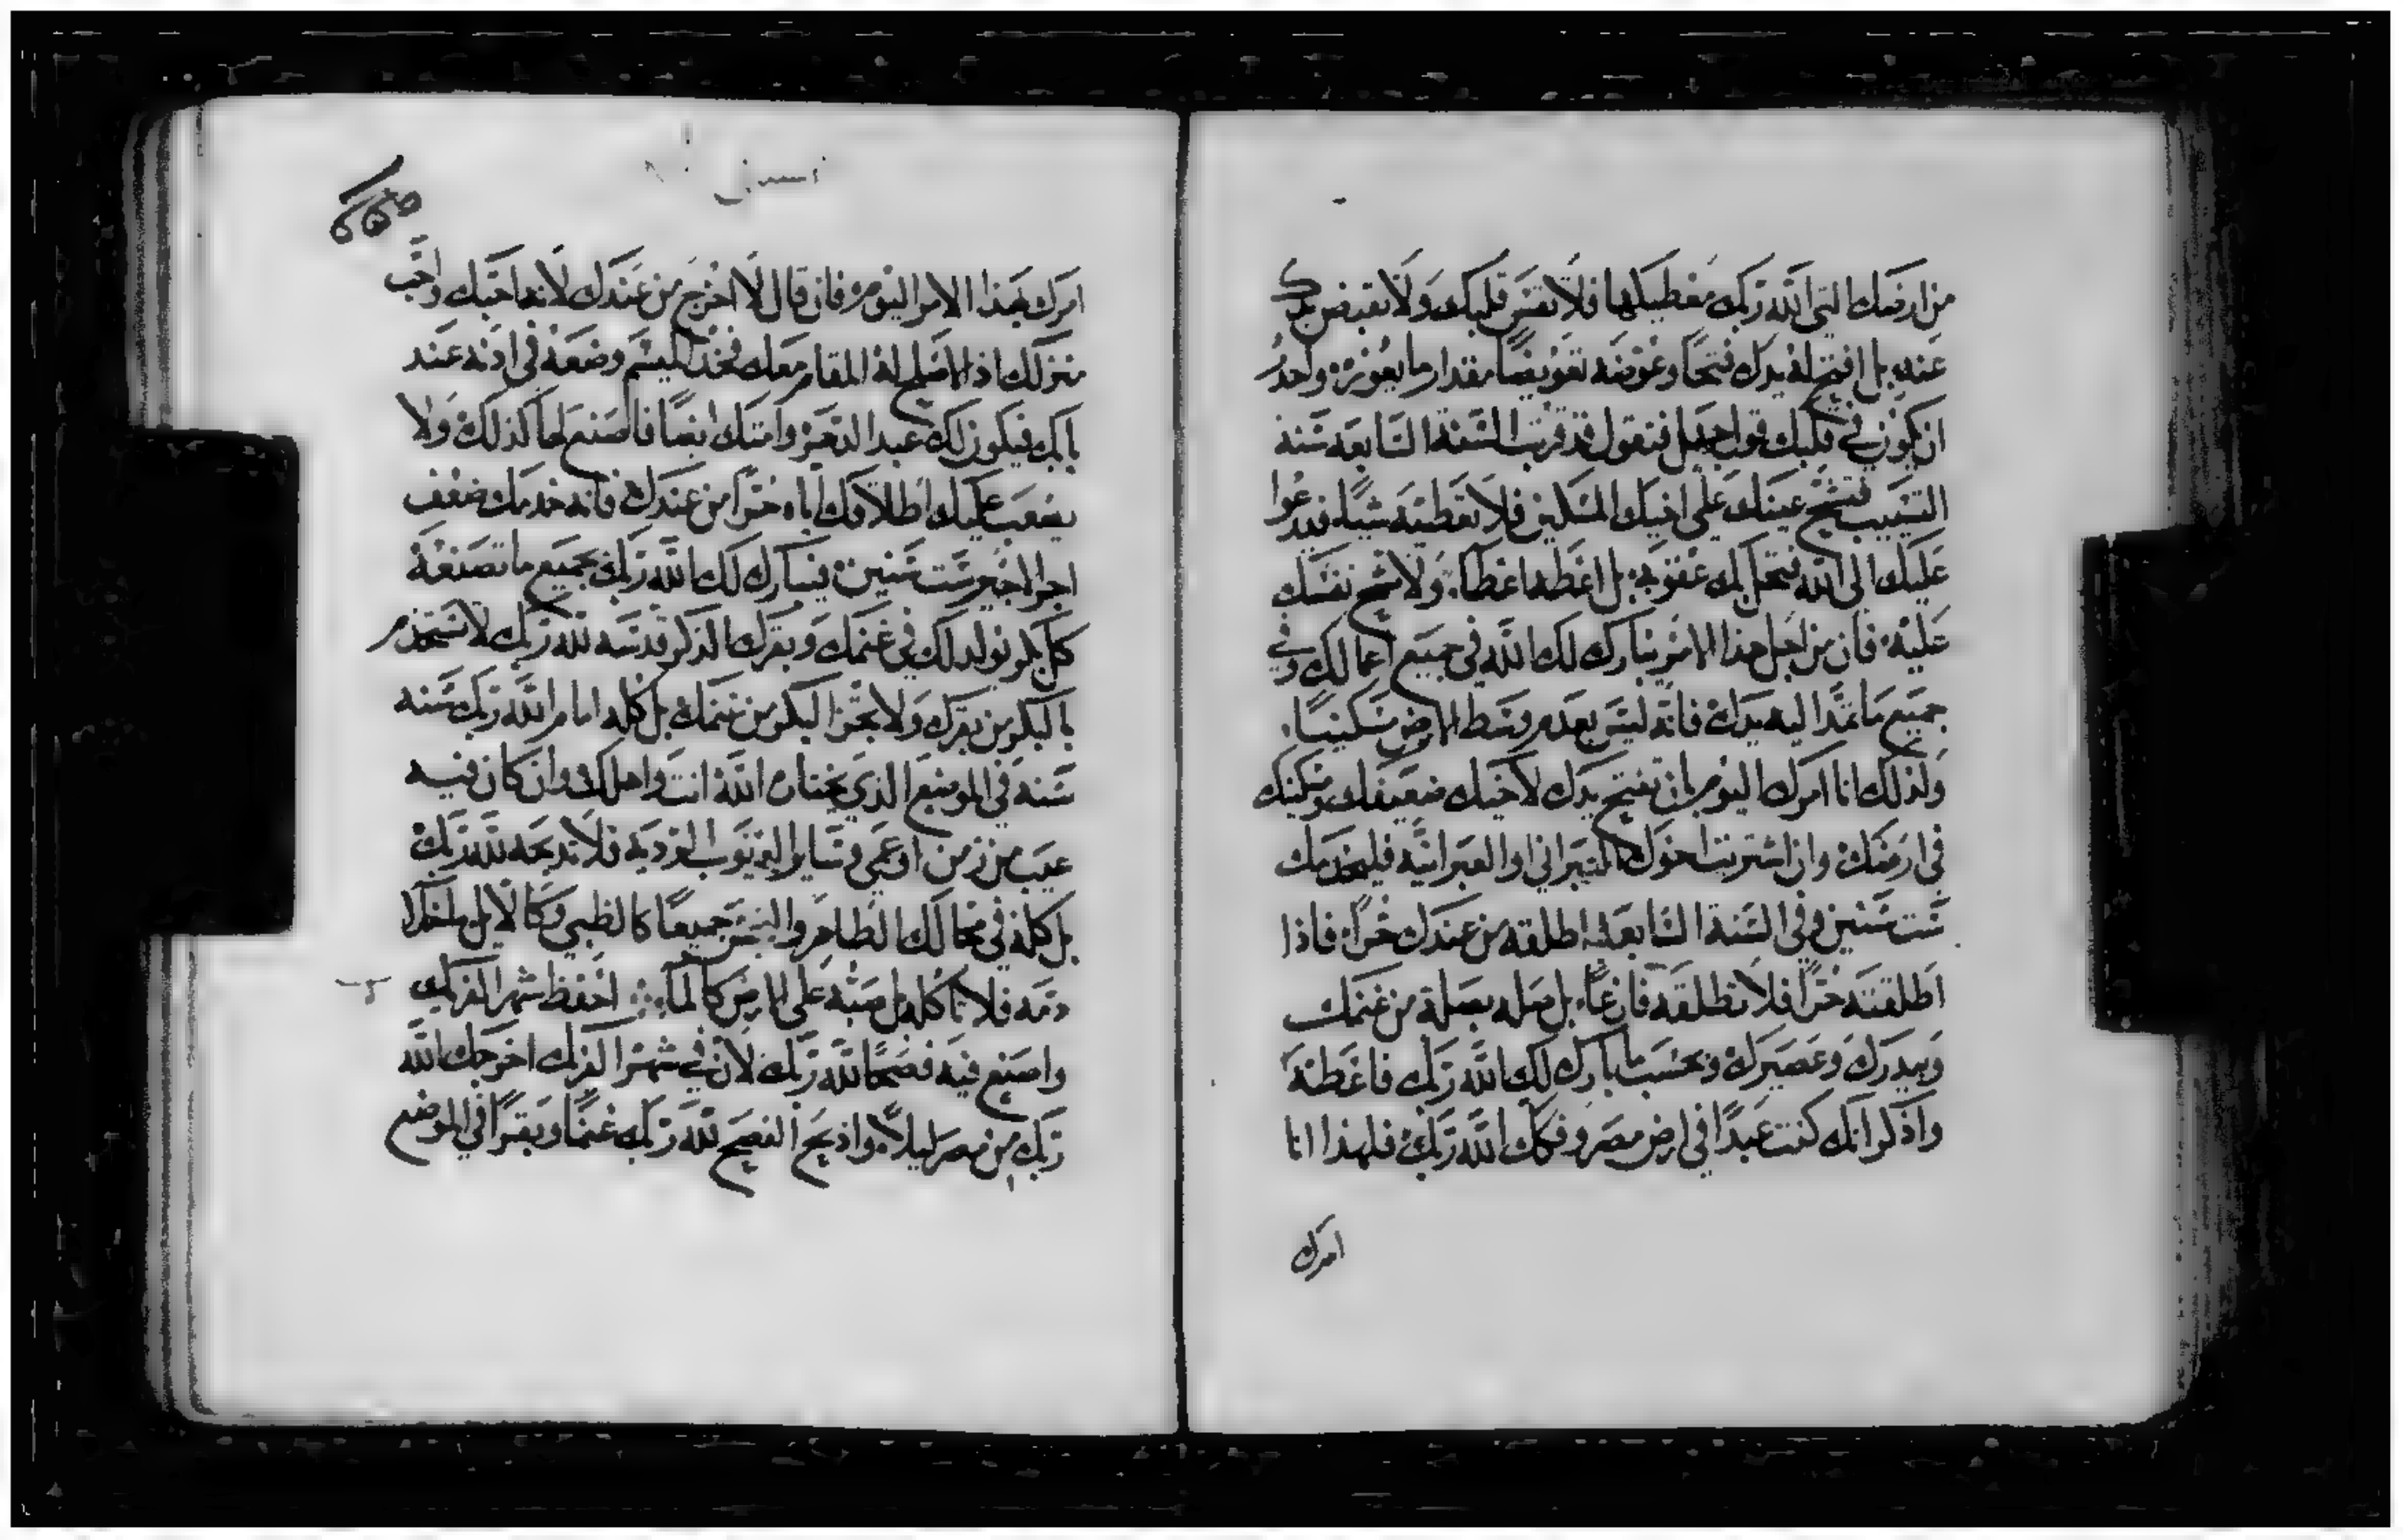 من ارضك التي الله ربك معطيكها فلا تقس قلبك ولا تقبض يدك
عنه بل افتح له يدك فتحا وعوضه تعويضا مقدار ما يعوزه واحذر
ان يكون في قلبك قول جهل فتقول قد قربت السنة السابعة سنة
التسييب فتشح عينك على اخيك المسكين فلا تعطيه شيا فيدعوا
عليك الى الله فتحل بك عقوبة بل اعطه اعطا ولا تشح نفسك
عليه فان من اجل هذا الامر يبارك لك الله في جميع اعمالك وفي
جميع ما تمد اليه يدك فانه ليس يعدم وسط الارض مسكينا
ولذلك انا امرك اليوم بان تفتح يدك لاخيك ضعيفك ومسكينك
في ارضك وان اشتريت اخوك العبراني او العبرانية فليخدمك
ست سنين وفي السنة السابعة اطلقه من عندك حرا فاذا
اطلقته حرا فلا تطلقه فارغا بل صله بصلة من غنمك
وبيدرك وعصيرك وبحسب ما بارك لك الله ربك فاعطه
واذكر انك كنت عبدا في ارض مصر وفكك الله ربك فلهذا انا
امرك
امرك بهذا الامر اليوم فان قال لا اخرج من عندك لانه احبك واحب
منزلك اذ الاصلح له المقام معك فخذ الميشم وضعه في اذنه عند
بابك فيكون لك عبد الدهر وامتك ايضا فاصنع لها كذلك ولا
يصعب عليك اطلاقك اياه حرا من عندك فانه خدمك ضعف
اجر الاجير ست سنين يبارك لك الله ربك بجميع ما تصنعه
كل بكر يولد لك في غنمك وبقرك الذكر قدسه لله ربك لا تستخدم
بالبكر من بقرك ولا تجز البكر من غنمك بل كله امام الله ربك سنه
سنة في الموضع الذي يختاره الله انت واهلك وان كان فيه
عيب من زمن او عمي وساير العيوب الردية فلا تذبحه لله ربك
بل كله في محالك الطاهر والنجس جميعا كالظبي وكالايل
دمه فلا تاكله بل صبه على الارض كالما احفظ شهر الفريك
واصنع فيه فصحا لله ربك لان في شهر الفريك اخرجك الله
ربك من مصر ليلا واذبح الفصح لله ربك غنما وبقرا في الموضع